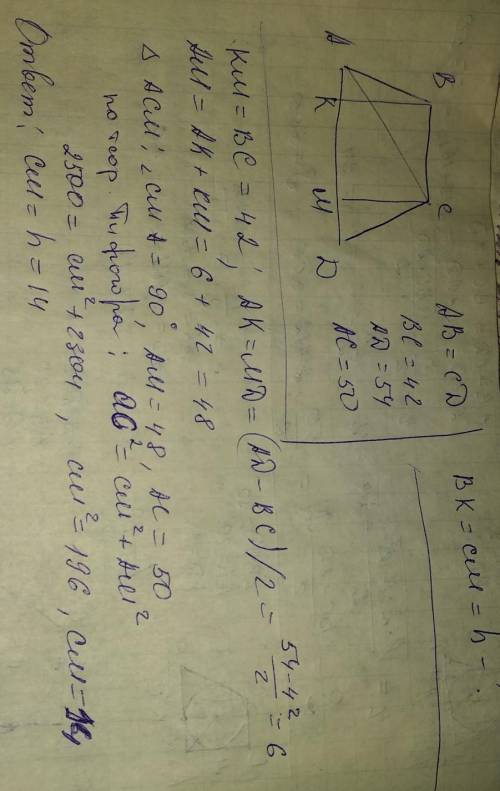 B
C
A
K
M
D
AB = CD
BC = 42
AD = 54
AC = 50
BK = CM = h -
KM = BC = 42; AK = MD = (AD - BC)/2 = 54-42/2 = 6
AM = AK + KM = 6 + 42 = 48
Δ ACM; ∠CMA = 90°, AM = 48, AC = 50
по теор Пифагора; AC² = CM² + AM²
2500 = CM² + 2304, CM² = 196, CM = 14
Ответ; CM = h = 14